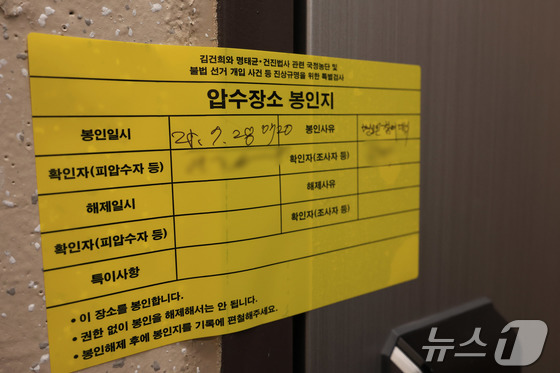 김건희와 명태균·건진법사 관련 국정농단 및
불법 선거 개입 사건 등 진상규명을 위한 특별검사
압수장소 봉인지
봉인일시 25. 7. 28 07:20 봉인사유
확인자(피압수자 등) 확인자(조사자 등)
해제일시 해제사유
확인자(피압수자 등) 확인자(조사자 등)
특이사항
• 이 장소를 봉인합니다.
• 권한 없이 봉인을 해제해서는 안 됩니다.
• 봉인해제 후에 봉인지를 기록에 편철해주세요.
뉴스1